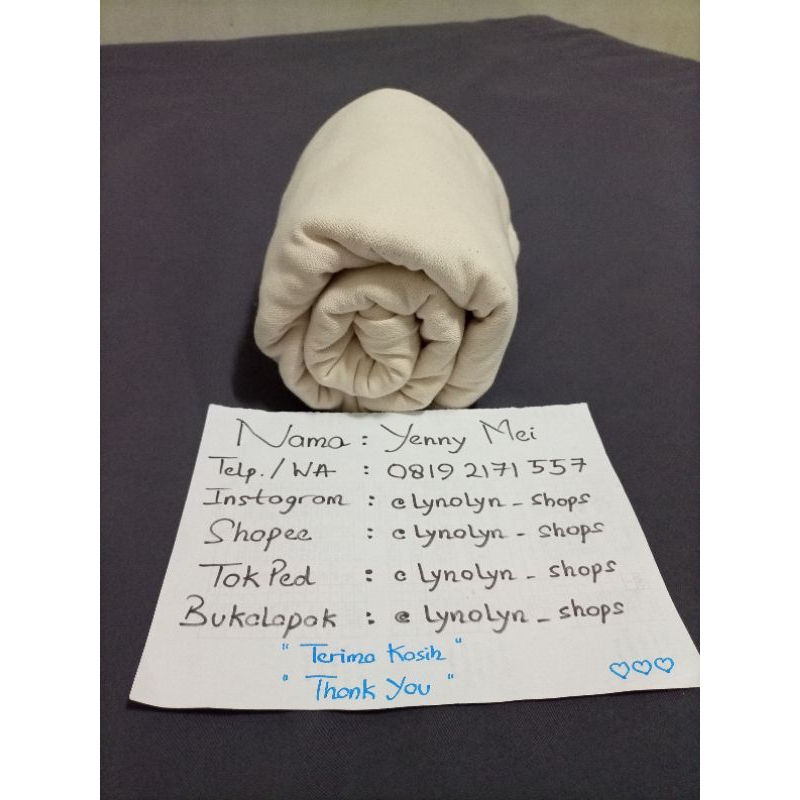 Nama : Yenny Mei
Telp. / WA : 0819 2171 557
Instagram : @lynolyn_shops
Shopee : @lynolyn_shops
TokPed : @lynolyn_shops
Bukalapak : @lynolyn_shops
"Terima Kasih"
"Thank You"